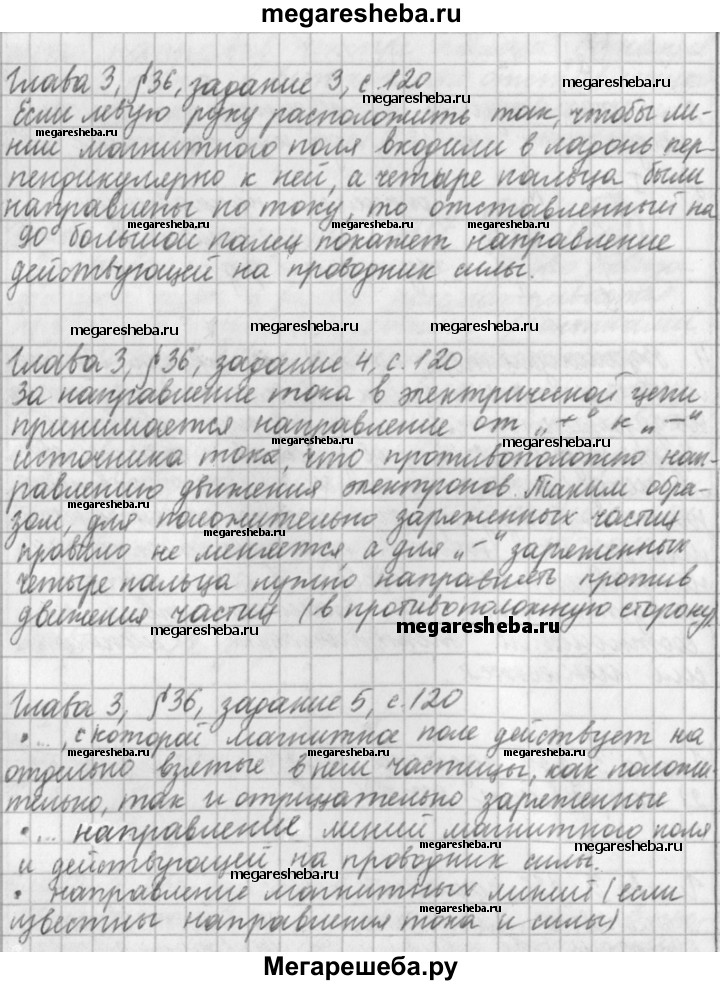 megaresheba.ru
Глава 3, §36, задание 3, с.120
megaresheba.ru
Если левую руку расположить так, чтобы ли-
megaresheba.ru megaresheba.ru
нии магнитного поля входили в ладонь пер-
пендикулярно к ней, а четыре пальца были
направлены по току, то отставленный на
megaresheba.ru megaresheba.ru
90° большой палец покажет направление
действующей на проводник силы.
megaresheba.ru megaresheba.ru megaresheba.ru
Глава 3, §36, задание 4, с.120
За направление тока в электрической цепи
принимается направление от „+“ к „−“
megaresheba.ru megaresheba.ru
источника тока, что противоположно нап-
равлению движения электронов. Таким обра-
megaresheba.ru megaresheba.ru
зом, для положительно заряженных частиц
правило не меняется, а для „−“ заряженных
megaresheba.ru megaresheba.ru
четыре пальца нужно направлять против
движения частиц (в противоположную сторону)
megaresheba.ru megaresheba.ru
Глава 3, §36, задание 5, с.120
• ..., с которой магнитное поле действует на
megaresheba.ru megaresheba.ru
отдельно взятые в нём частицы, как положи-
тельно, так и отрицательно заряженные
• ... направление линий магнитного поля
megaresheba.ru
и действующей на проводник силы.
megaresheba.ru
• направление магнитных линий (если
megaresheba.ru
известны направления тока и силы)
Мегарешеба.ру